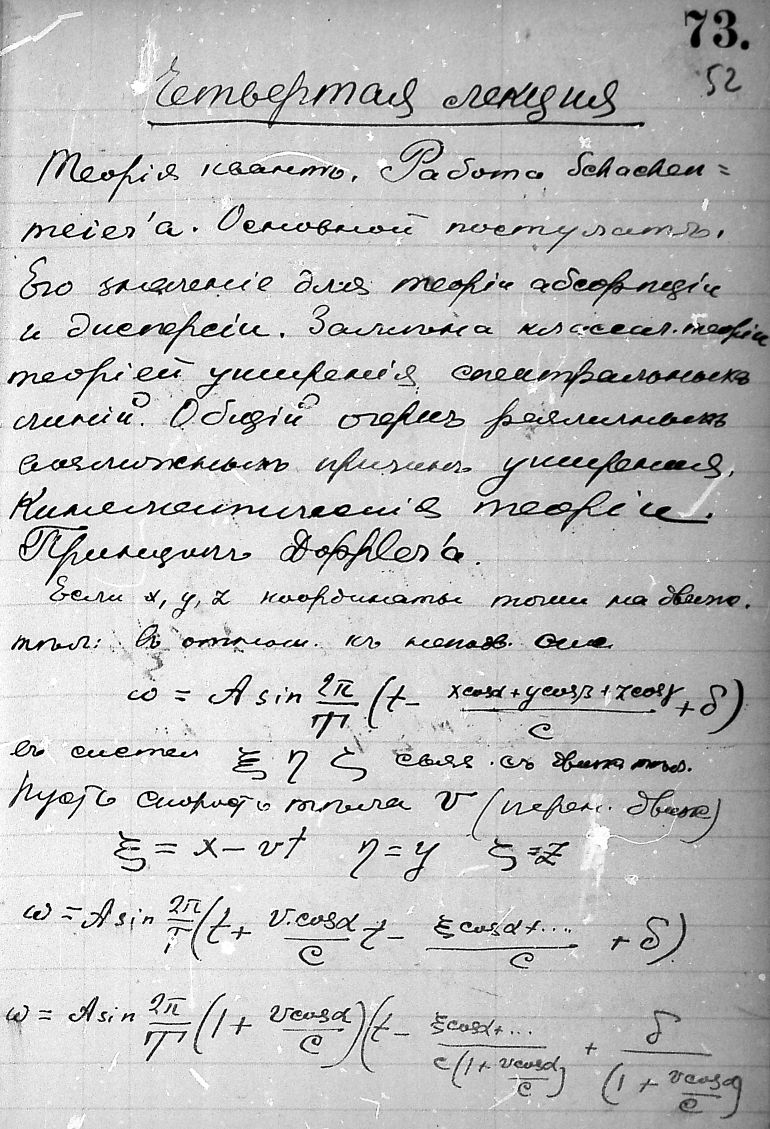 73.
52
Четвертая лекция
Теорія квантъ. Работа Schachen=
meier'а. Основной постулатъ.
Его значеніе для теоріи абсорпціи
и дисперсіи. Замѣна классич. теоріи
теоріей уширенія спектральныхъ
линій. Общій очеркъ различныхъ
возможныхъ причинъ уширенія.
Кинематическія теоріи.
Принципъ Doppler'а.
Если x, y, z координаты точки на движ.
тѣлѣ въ относ. къ непод. сист
ω = A sin 2π/T (t - (x cosα + y cosβ + z cosγ)/c + δ)
въ систем ξ η ζ связ. съ движ тѣл.
Пусть скорость тѣла v (перен. движ)
ξ = x - vt η = y ζ = z
ω = A sin 2π/T (t + v.cosα/c t - (ξ cosα + ....)/c + δ)
ω = A sin 2π/T (1 + v cosα/c) (t - (ξ cosα + ...)/(c (1 + v cosα/c)) + δ/(1 + v cosα/c)